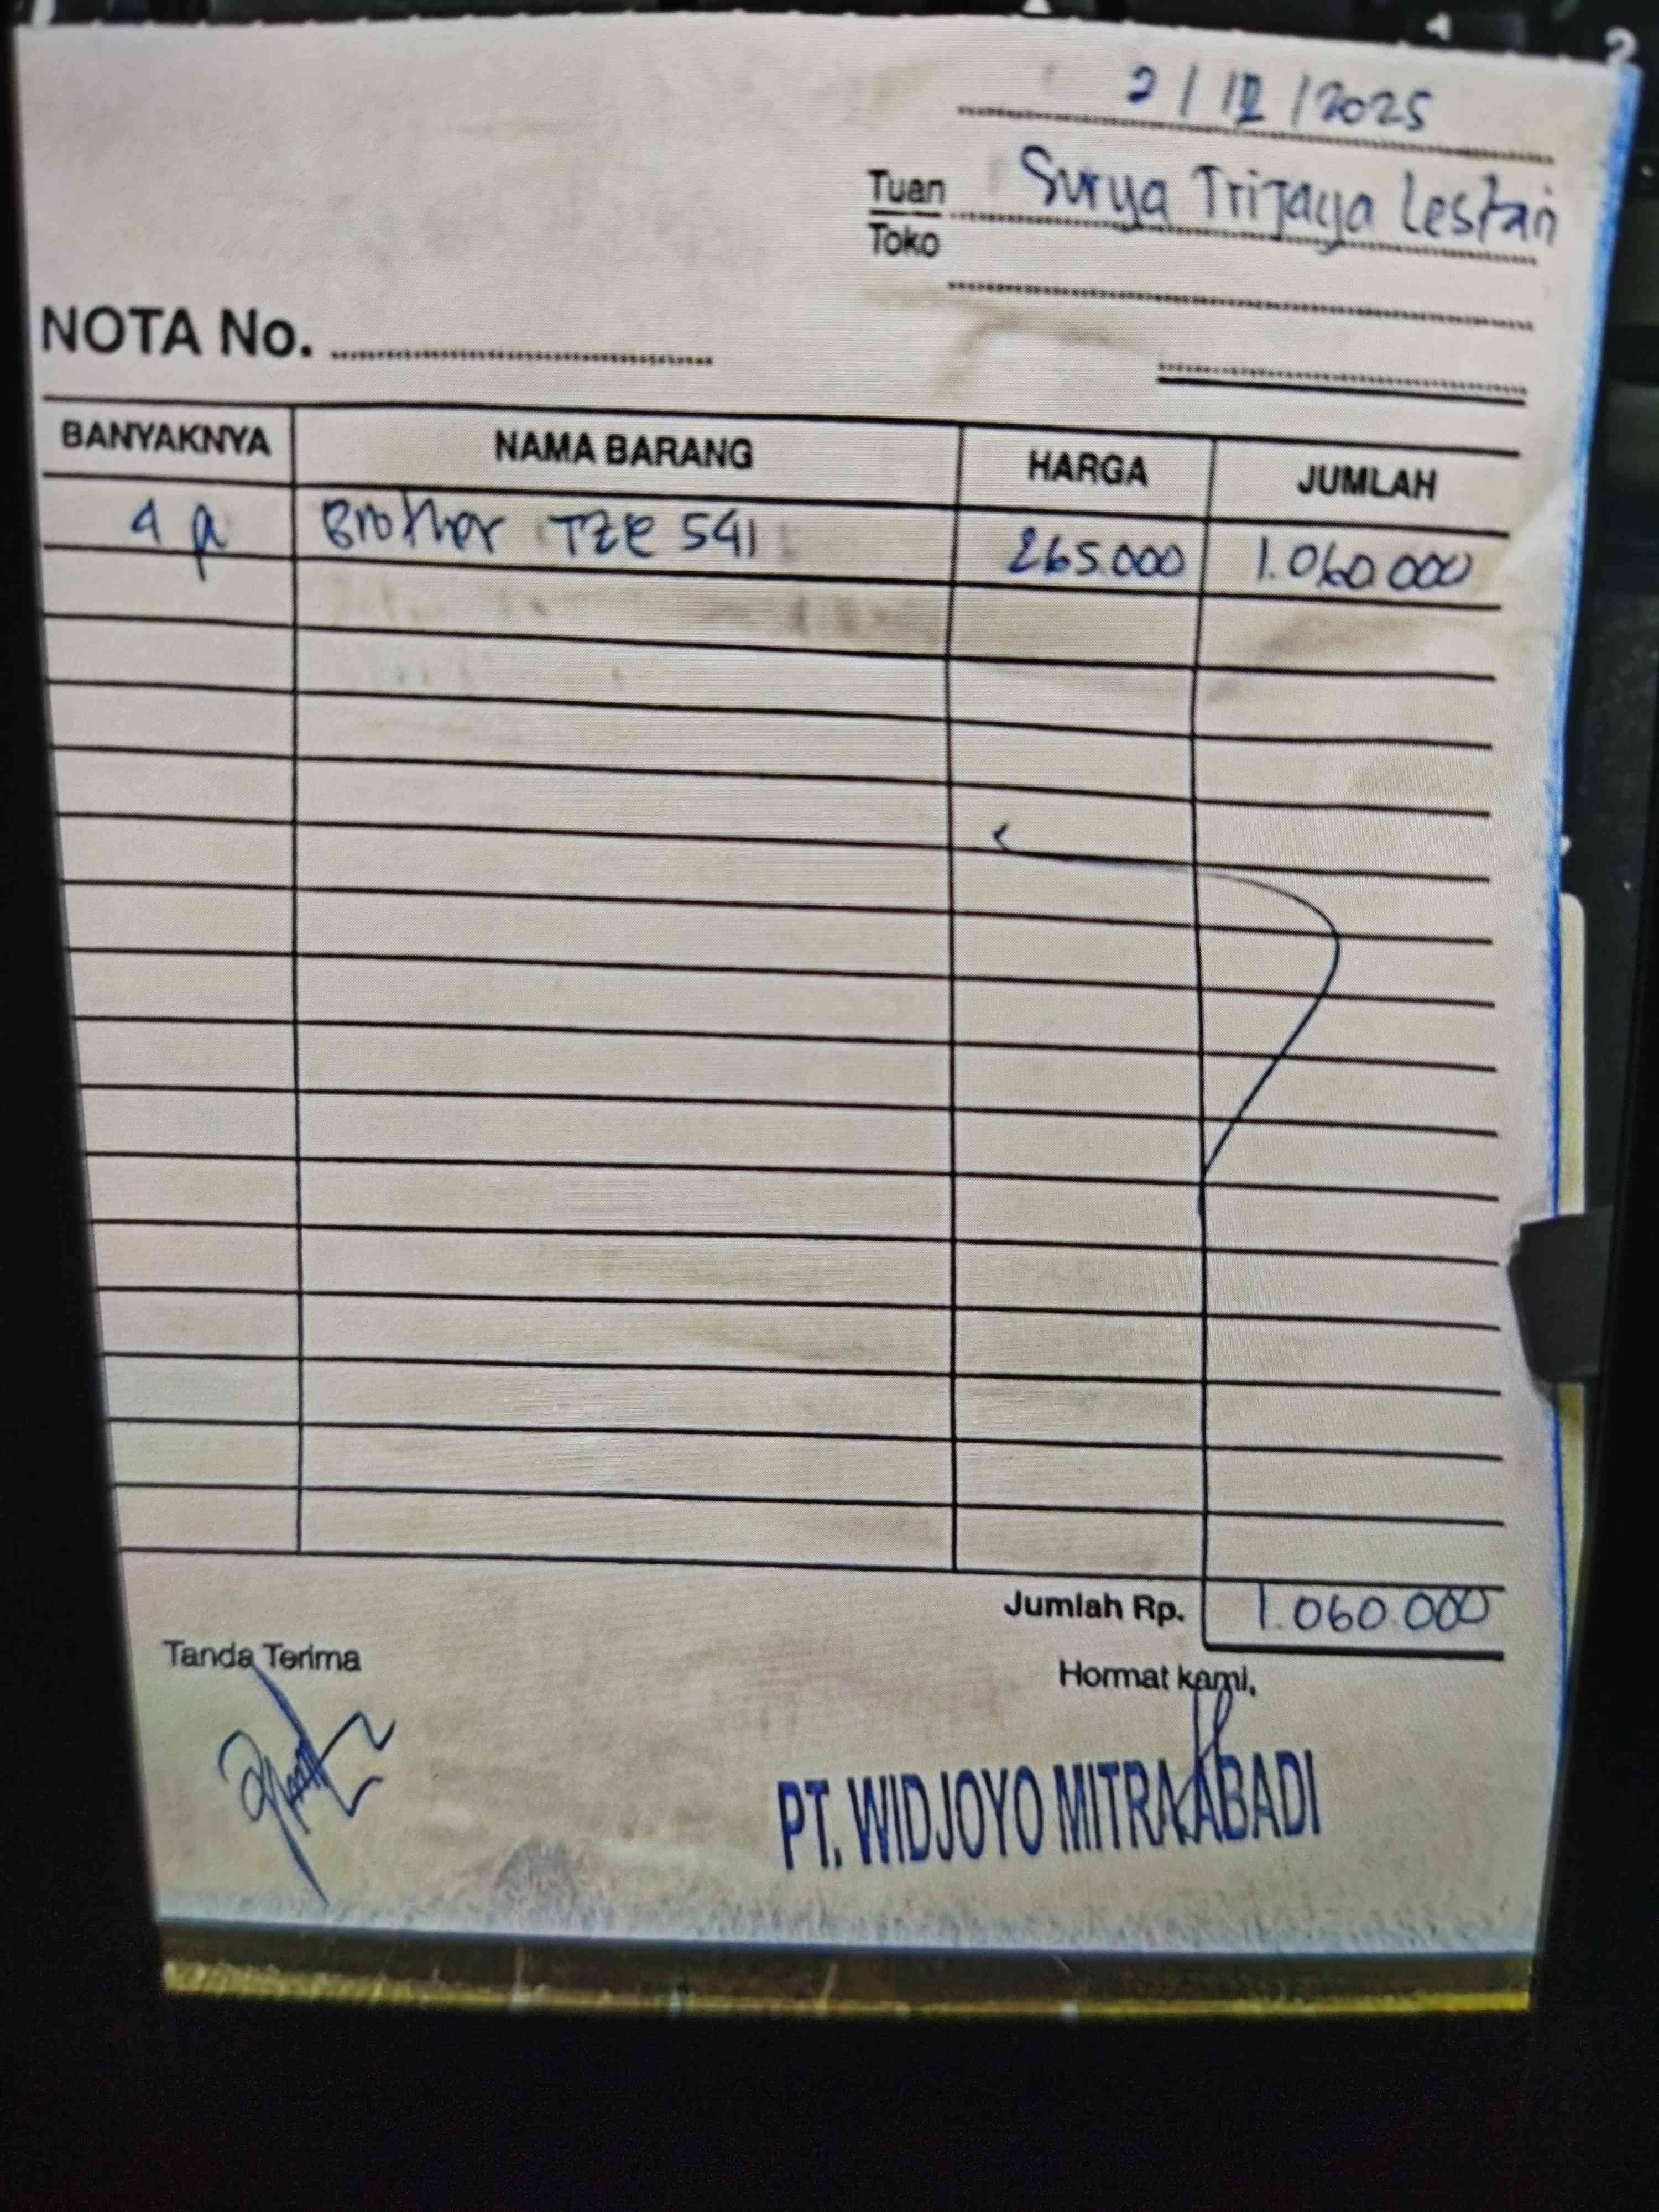 2/12/2025
Tuan Surya Trijaya Lestari
Toko
NOTA No.
BANYAKNYA NAMA BARANG HARGA JUMLAH
4 p Brother TZE 541 265.000 1.060.000
Jumlah Rp. 1.060.000
Tanda Terima
Hormat kami,
PT. WIDJOYO MITRA ABADI